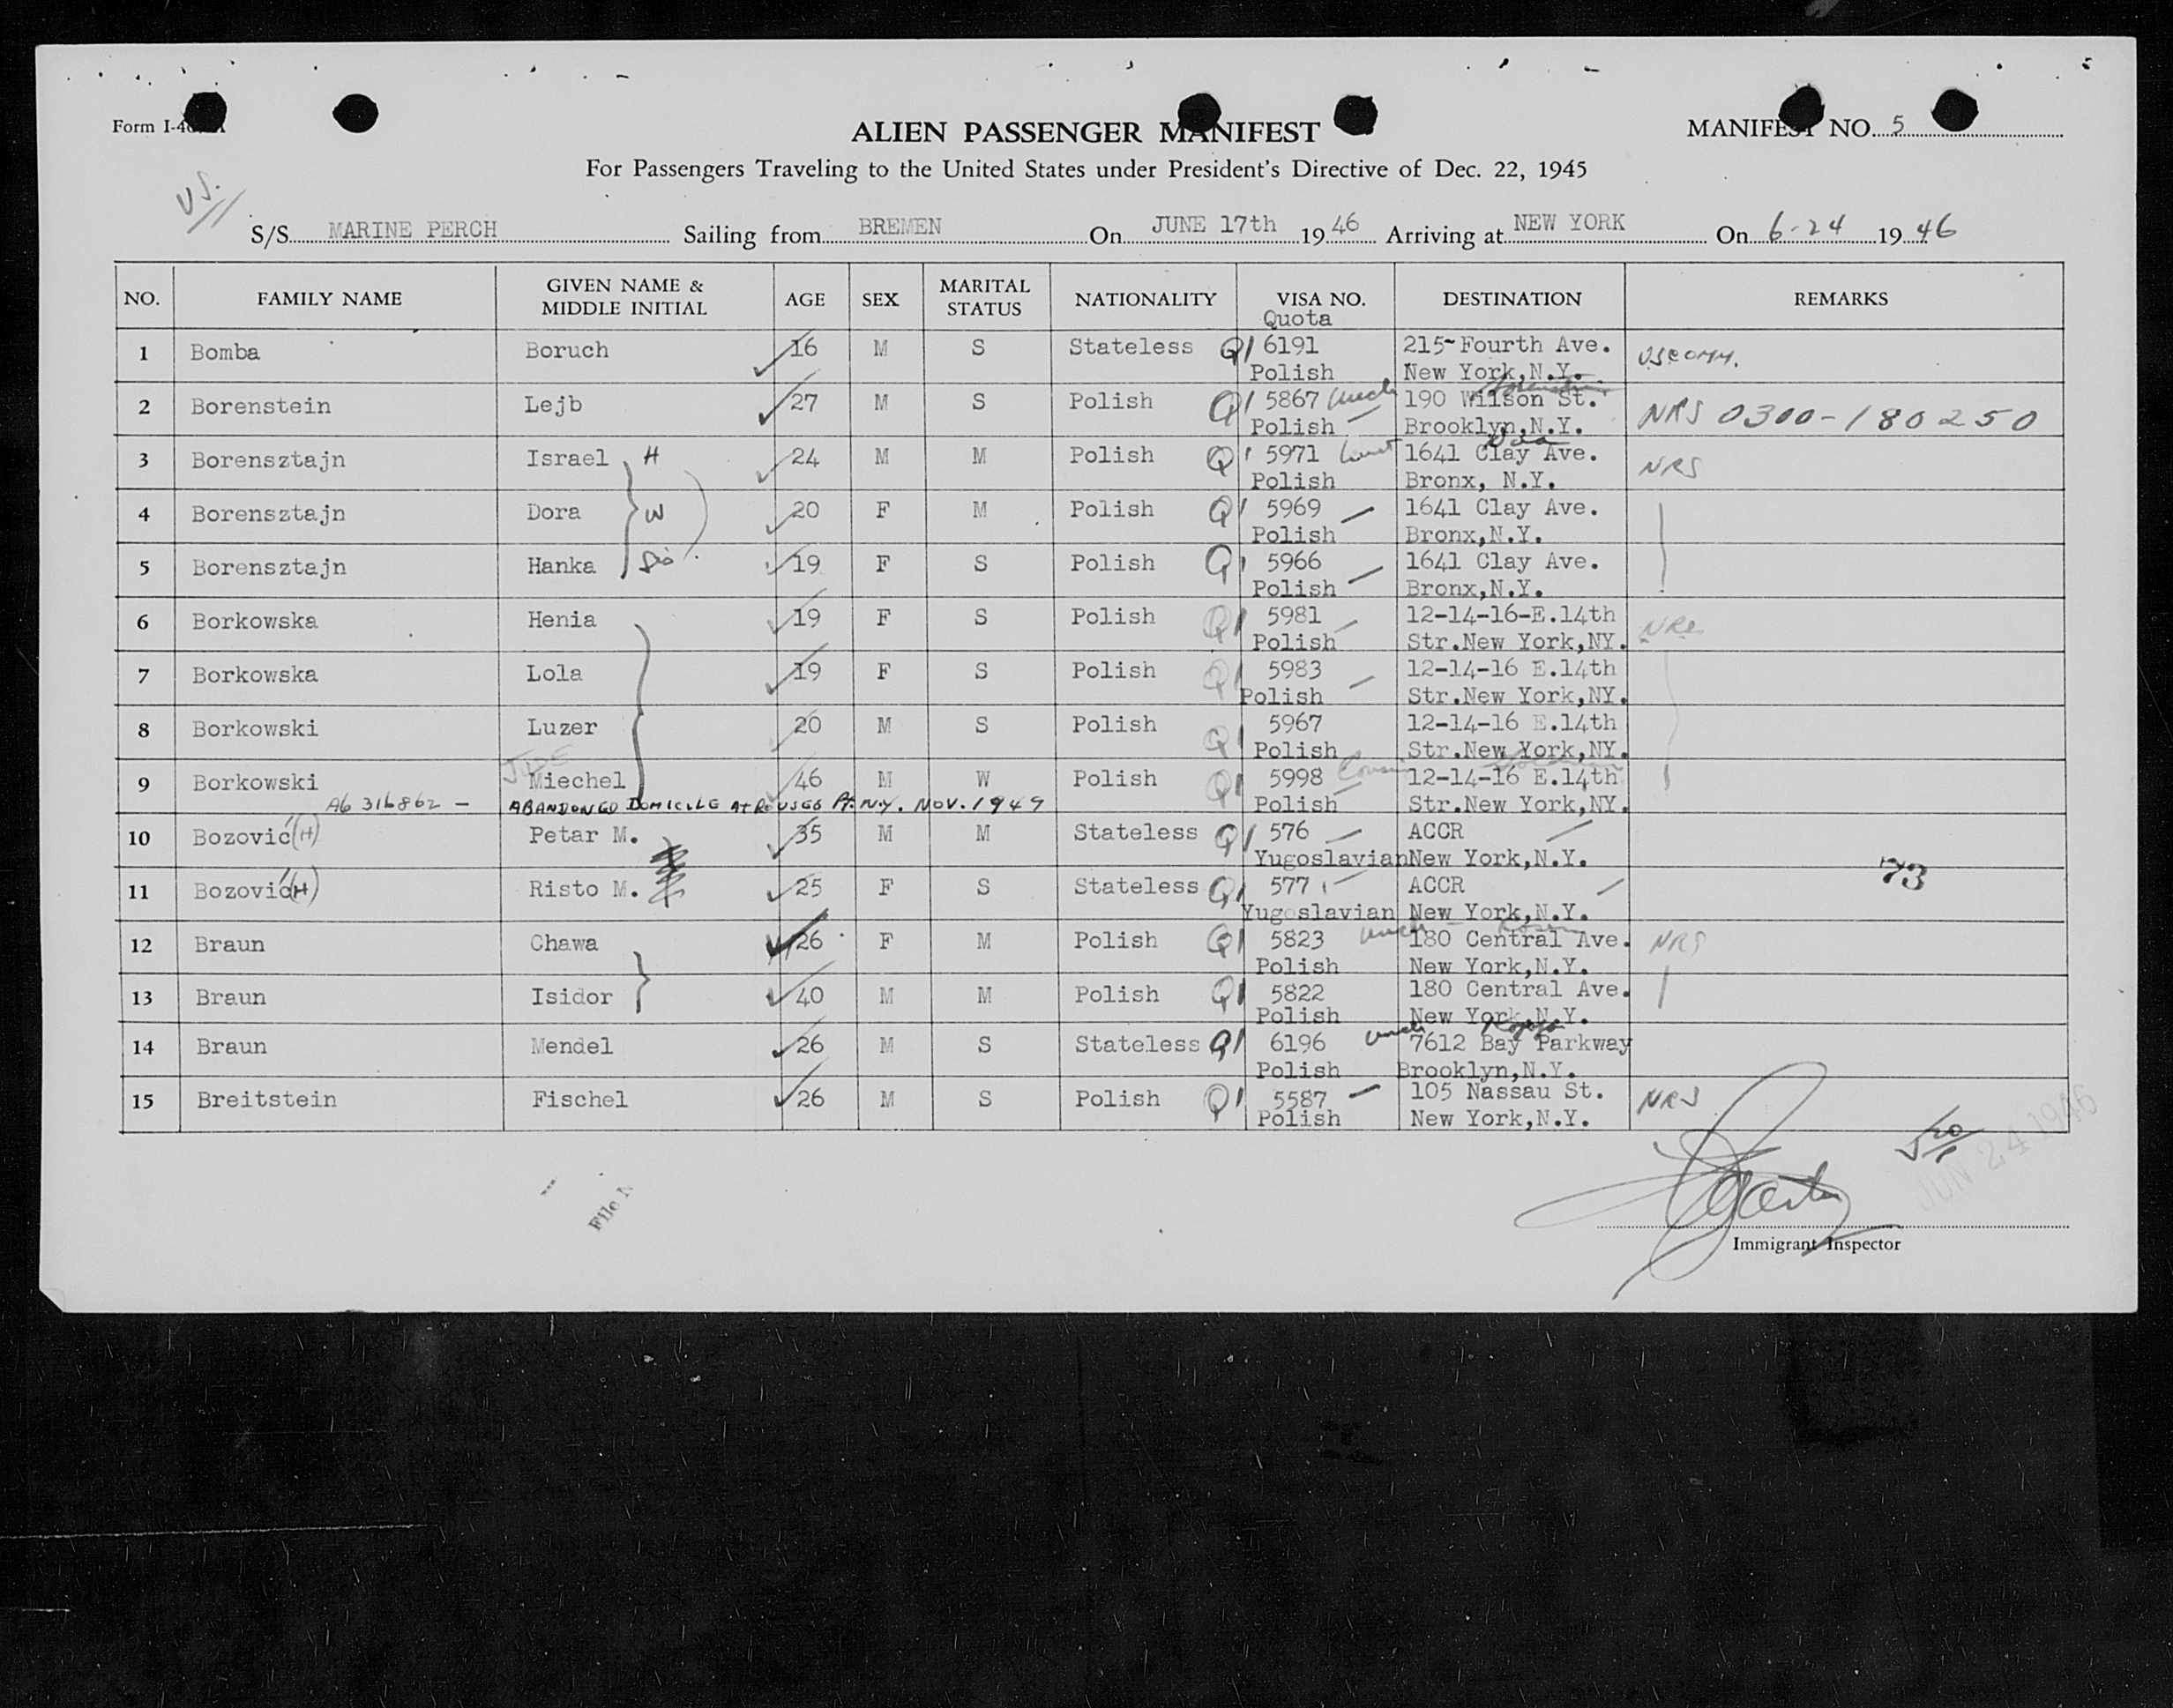 Form I-4
ALIEN PASSENGER MANIFEST
MANIFEST NO. 5
For Passengers Traveling to the United States under President's Directive of Dec. 22, 1945
US.
S/S MARINE PERCH Sailing from BREMEN On JUNE 17th 1946 Arriving at NEW YORK On 6-24 1946
NO. FAMILY NAME GIVEN NAME & MIDDLE INITIAL AGE SEX MARITAL STATUS NATIONALITY VISA NO. Quota DESTINATION REMARKS
1 Bomba Boruch 16 M S Stateless Q1 6191 215-Fourth Ave.
Polish New York,N.Y.
2 Borenstein Lejb 27 M S Polish Q1 5867 uncle 190 Wilson St. NRS 0300-180250
Polish Brooklyn,N.Y.
3 Borensztajn Israel H 24 M M Polish Q1 5971 1641 Clay Ave. NRS
Polish Bronx, N.Y.
4 Borensztajn Dora W 20 F M Polish Q1 5969 1641 Clay Ave.
Polish Bronx,N.Y.
5 Borensztajn Hanka Sis. 19 F S Polish Q1 5966 1641 Clay Ave.
Polish Bronx,N.Y.
6 Borkowska Henia 19 F S Polish Q1 5981 12-14-16-E.14th
Polish Str.New York,NY.
7 Borkowska Lola 19 F S Polish Q1 5983 12-14-16 E.14th
Polish Str.New York,NY.
8 Borkowski Luzer 20 M S Polish Q1 5967 12-14-16 E.14th
Polish Str.New York,NY.
JUDE
9 Borkowski Miechel 46 M W Polish Q1 5998 Cousin 12-14-16 E.14th
Polish Str.New York,NY.
A6 316862 - ABANDONED DOMICILE AT ROUSES Pt. N.Y. NOV. 1949
10 Bozovic (H) Petar M. 35 M M Stateless Q1 576 ACCR
Yugoslavian New York,N.Y.
11 Bozovic (H) Risto M. 25 F S Stateless Q1 577 ACCR 73
Yugoslavian New York,N.Y.
12 Braun Chawa 26 F M Polish Q1 5823 uncle 180 Central Ave. NRS
Polish New York,N.Y.
13 Braun Isidor 40 M M Polish Q1 5822 180 Central Ave.
Polish New York,N.Y.
14 Braun Mendel 26 M S Stateless Q1 6196 uncle 7612 Bay Parkway
Polish Brooklyn,N.Y.
15 Breitstein Fischel 26 M S Polish Q1 5587 105 Nassau St. NRS
Polish New York,N.Y.
JUN 24 1946
File N
Immigrant Inspector